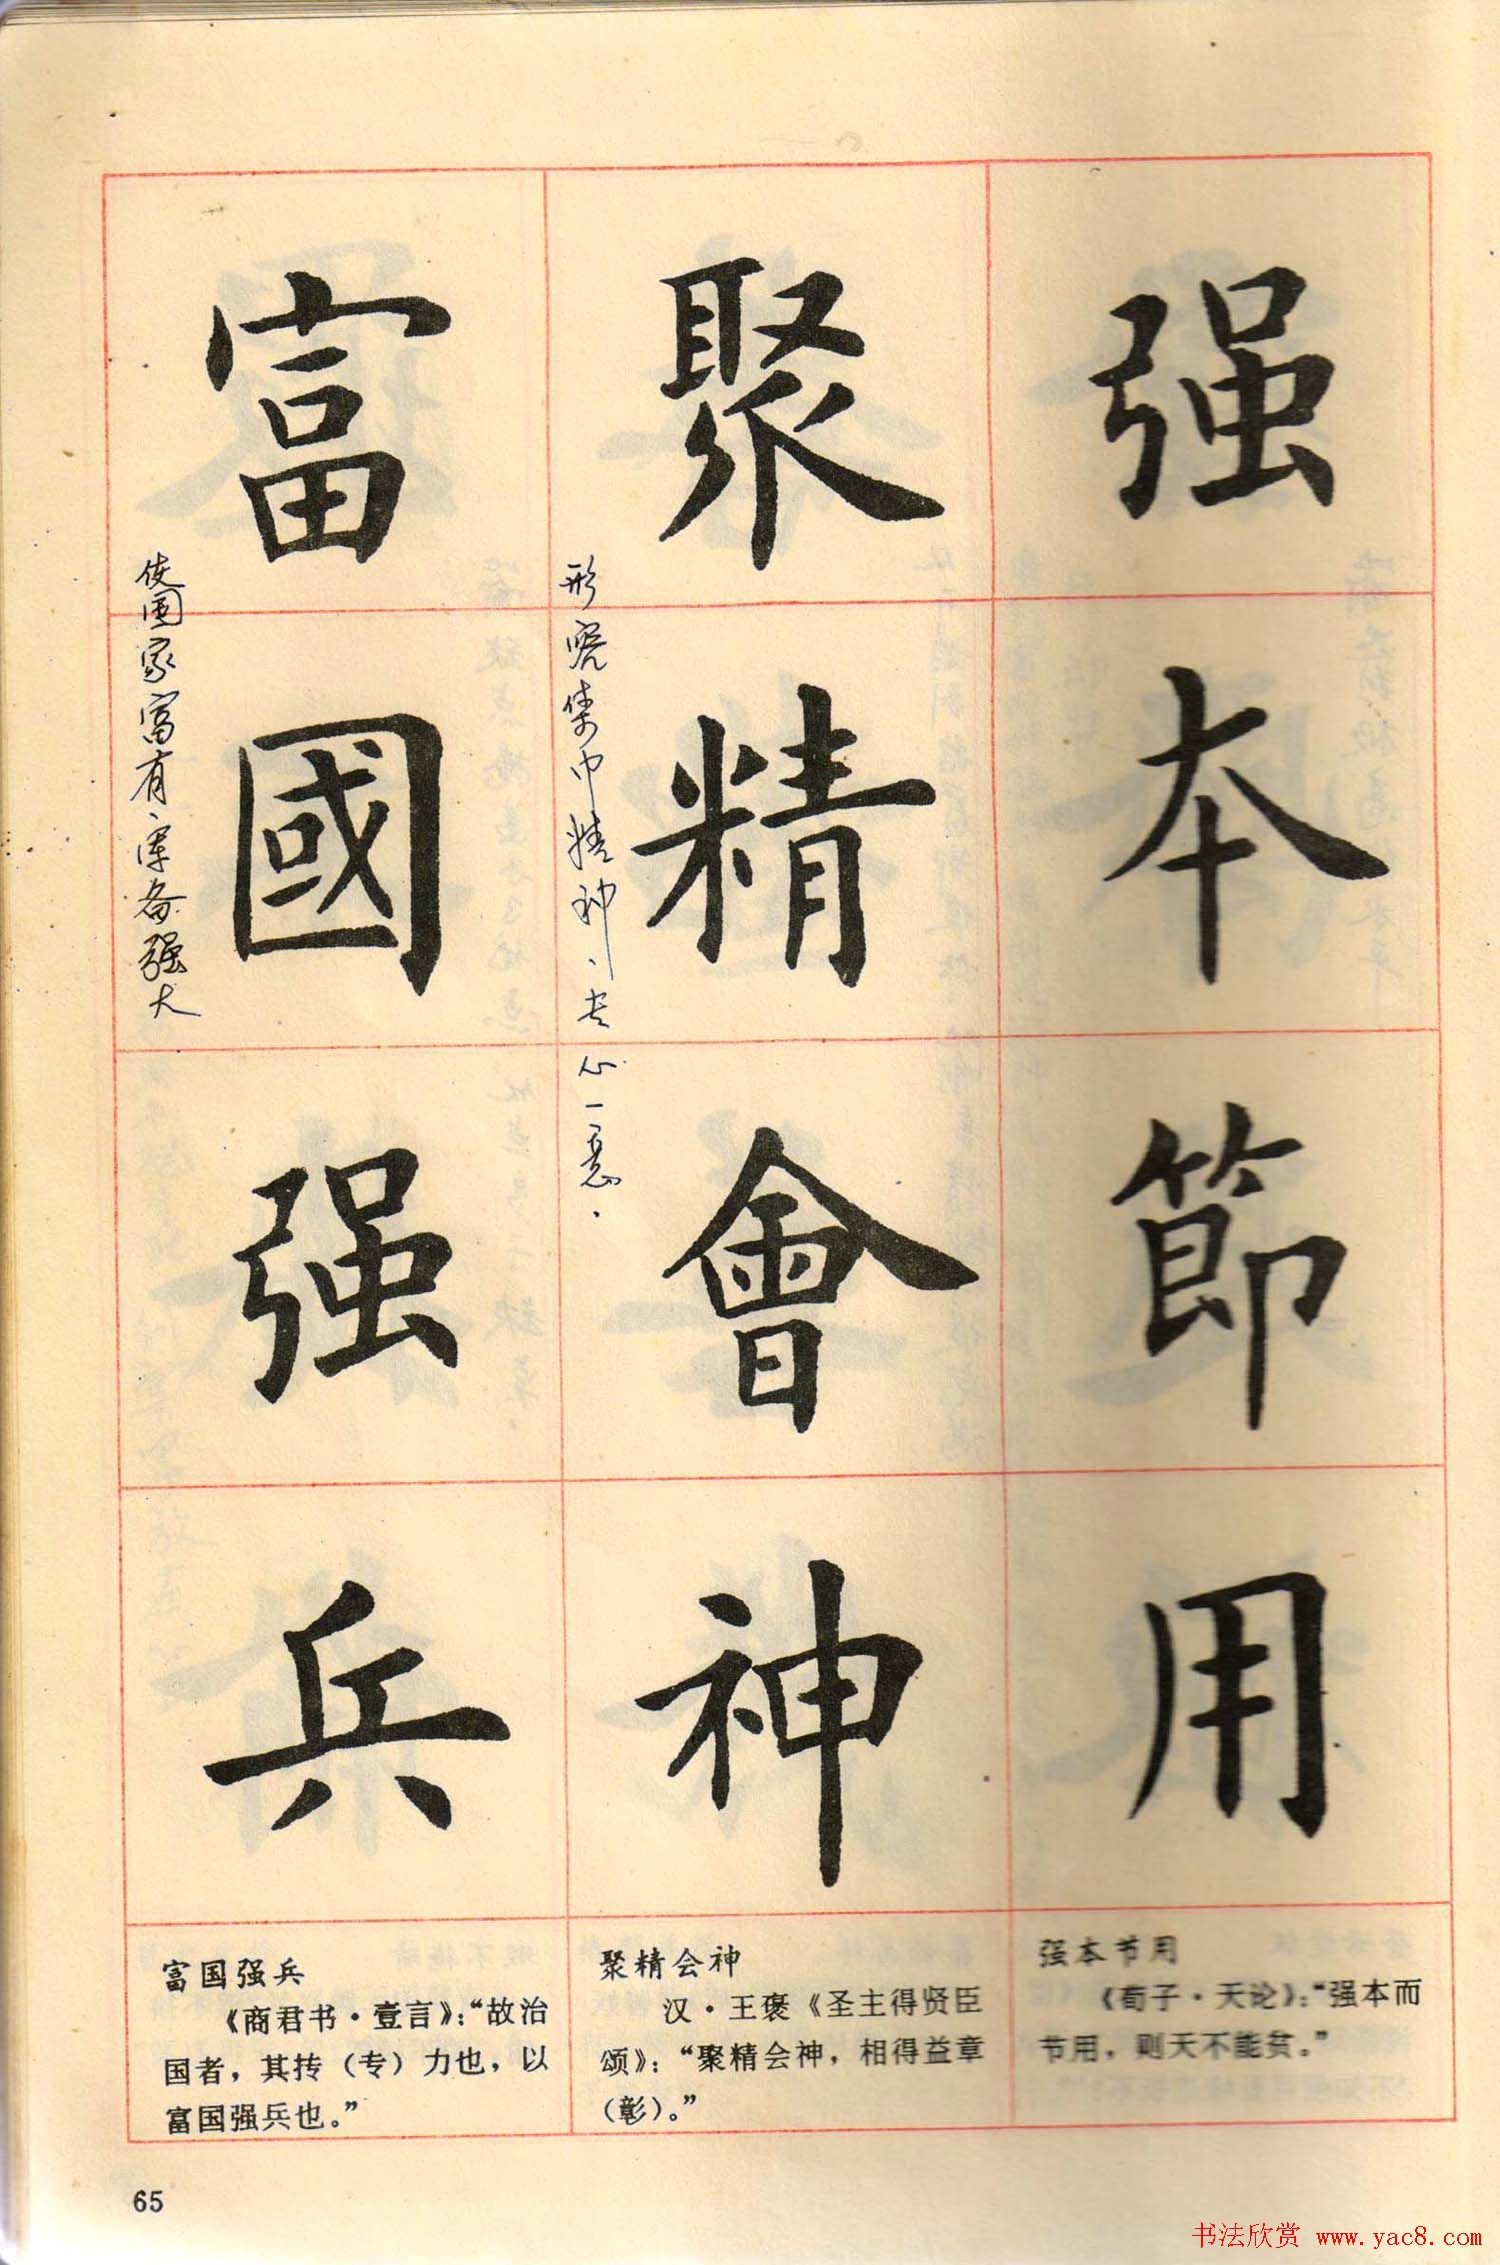 强本節用
聚精會神
形容集中精神、专心一意.
富國强兵
使国家富有、军备强大
强本节用
《荀子·天论》：“强本而
节用，则天不能贫。”
聚精会神
汉·王褒《圣主得贤臣
颂》：“聚精会神，相得益章
（彰）。”
富国强兵
《商君书·壹言》：“故治
国者，其抟（专）力也，以
富国强兵也。”
65
书法欣赏 www.yac8.com